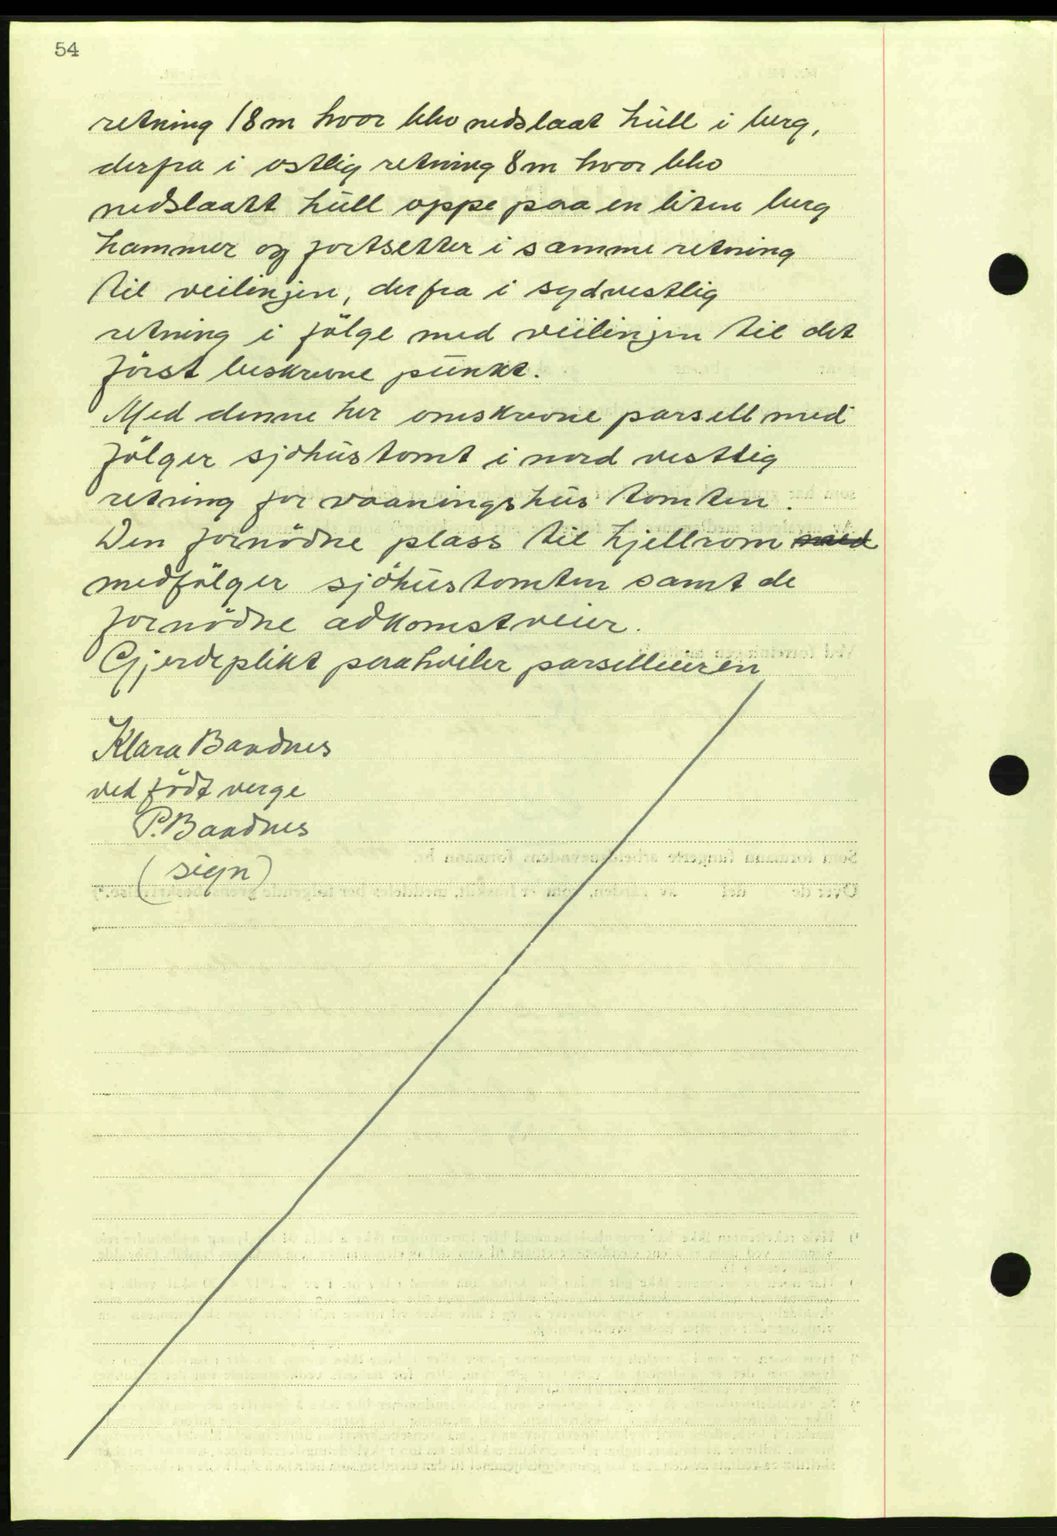 54
retning 18 m hvor blev nedslaat hull i berg,
derfra i ostlig retning 8 m hvor blev
nedslaatt hull oppe paa en liten berg
hammer og fortsetter i samme retning
til veilinjen, derfra i sydvestlig
retning i følge med veilinjen til det
først beskrevne punkt.
Med denne her omskrevne parsell med
følger sjøhustomt i nord vestlig
retning for vaaningshus tomten.
Den fornødne plass til kjellrom
medfølger sjøhustomten samt de
fornødne adkomstveier.
Gjerdeplikt paahviler parselleieren
Klara Baadnes
ved født verge
P. Baadnes
(sign)